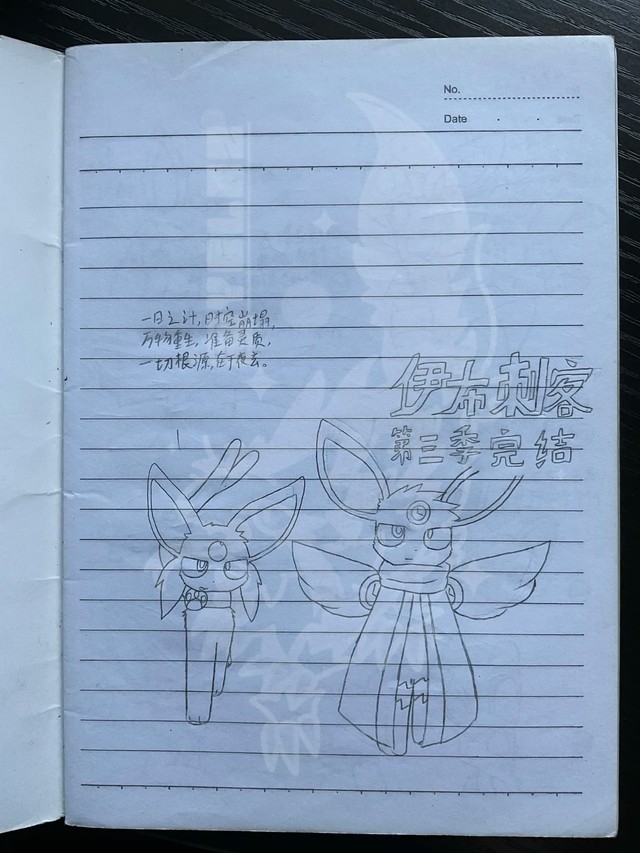 No.
Date
一日之计,时空崩塌,
万物重生,准备灵质,
一切根源,
伊布刺客
第三季完结